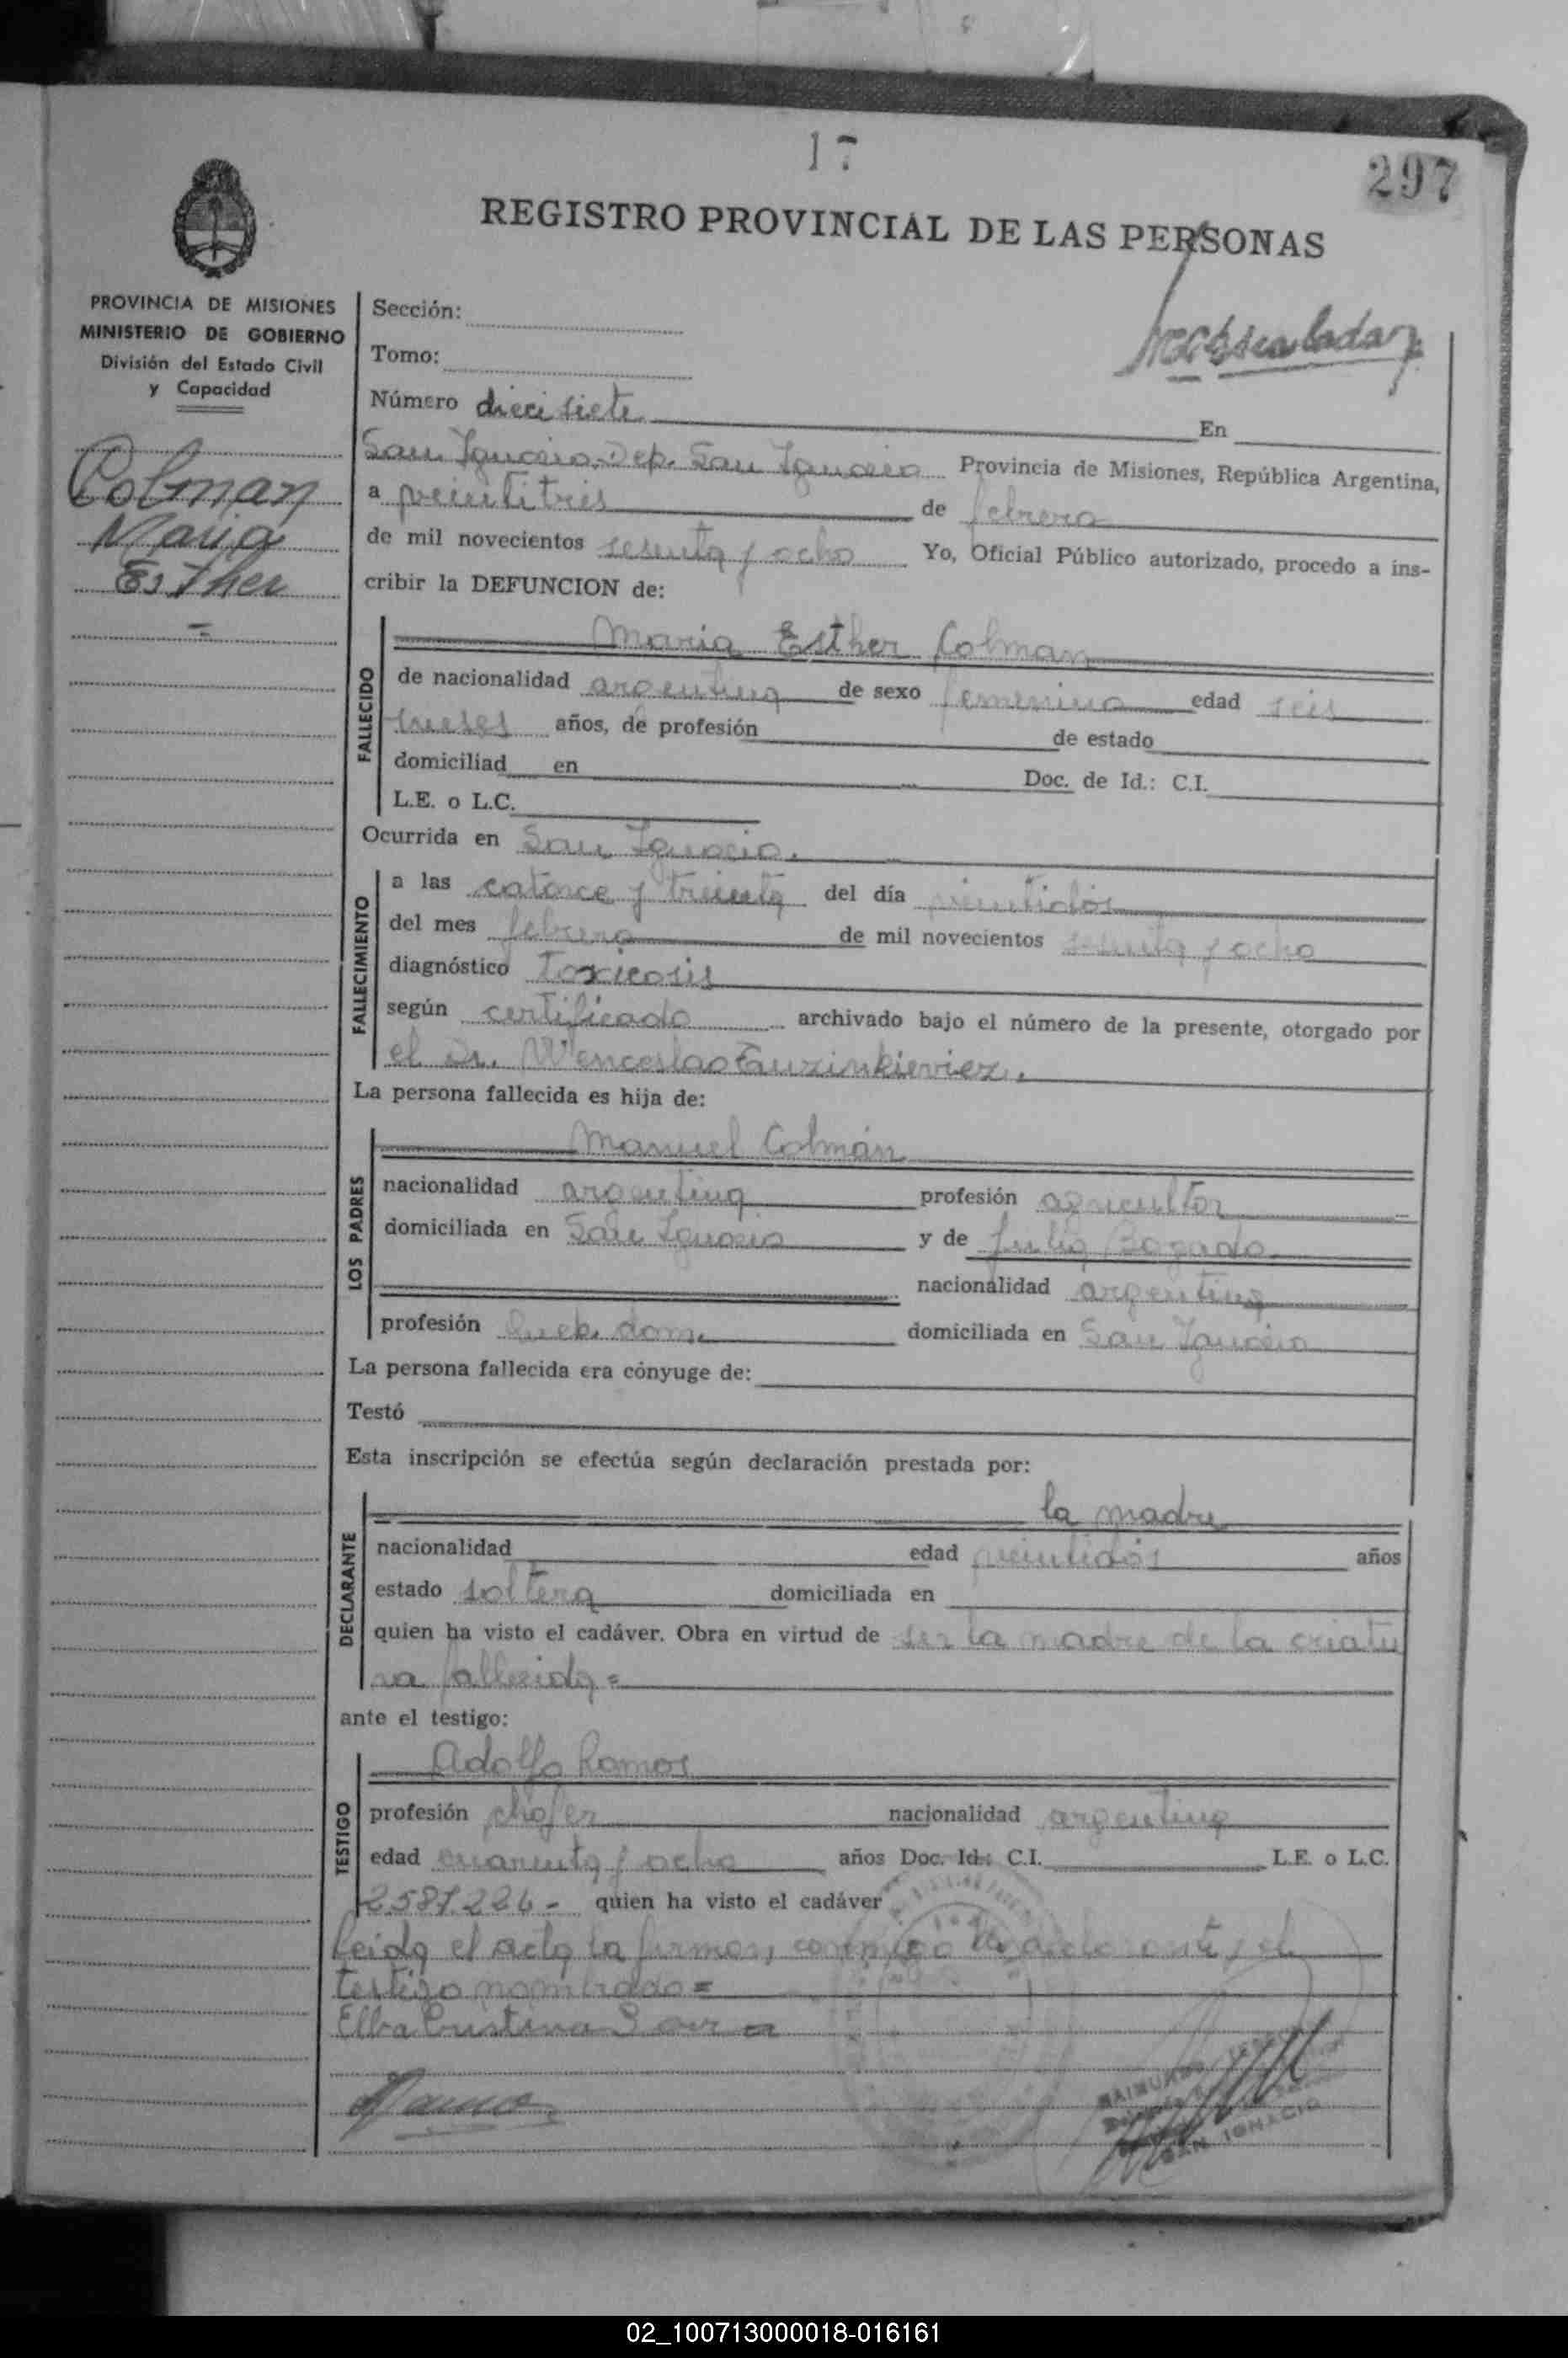 17
297
REGISTRO PROVINCIAL DE LAS PERSONAS
PROVINCIA DE MISIONES
MINISTERIO DE GOBIERNO
División del Estado Civil
y Capacidad
Colman
Maria
Esther
Sección:
Tomo:
Número diecisiete En
San Ignacio. Dep. San Ignacio Provincia de Misiones, República Argentina,
a veintitres de febrero
de mil novecientos sesenta y ocho Yo, Oficial Público autorizado, procedo a ins-
cribir la DEFUNCION de:
FALLECIDO
Maria Esther Colman
de nacionalidad argentina de sexo femenino edad seis
meses años, de profesión de estado
domiciliad en Doc. de Id.: C.I.
L.E. o L.C.
Ocurrida en San Ignacio.
FALLECIMIENTO
a las catorce y treinta del día veintidós
del mes febrero de mil novecientos sesenta y ocho
diagnóstico Toxicosis
según certificado archivado bajo el número de la presente, otorgado por
el Dr. Wenceslao
La persona fallecida es hija de:
LOS PADRES
Manuel Colmán
nacionalidad argentina profesión agricultor
domiciliada en San Ignacio y de Julia Bogado
nacionalidad argentina
profesión queh. dom. domiciliada en San Ignacio
La persona fallecida era cónyuge de:
Testó
Esta inscripción se efectúa según declaración prestada por:
DECLARANTE
la madre
nacionalidad edad veintidós años
estado soltera domiciliada en
quien ha visto el cadáver. Obra en virtud de ser la madre de la criatu
ra fallecida =
ante el testigo:
TESTIGO
Adolfo Ramos
profesión chofer nacionalidad argentina
edad cuarenta y ocho años Doc. Id.: C.I. L.E. o L.C.
2587226- quien ha visto el cadáver
Leida el acta la firman, conmigo la declarante y el
testigo nombrado =
Elba Cristina
Ramos
SAN IGNACIO
02_100713000018-016161